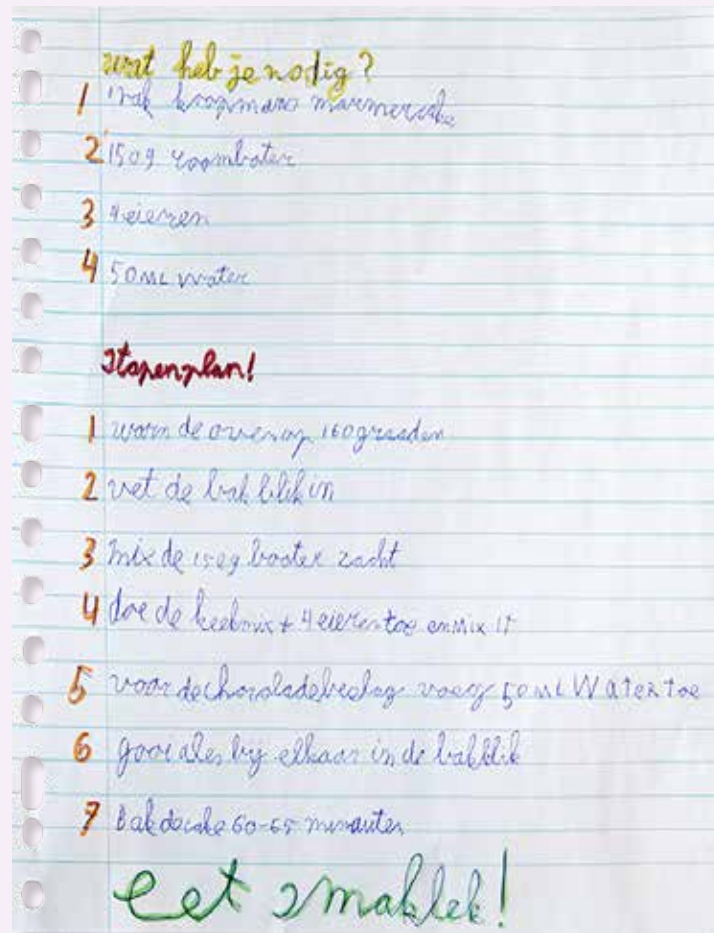 wat heb je nodig?
1 1 pak koopmans marmercake
2 150g roomboter
3 4 eieren
4 50ML water
stapenplan!
1 warm de oven op 160 graaden
2 vet de bak blik in
3 mix de 150g booter zacht
4 doe de keekmix + 4 eieren toe en Mix IT
5 voor de chocoladebeslag voeg 50ML WATER toe
6 gooi ales bij elkaar in de bakblik
7 Bak de cake 60-65 minauten
eet smaklek!